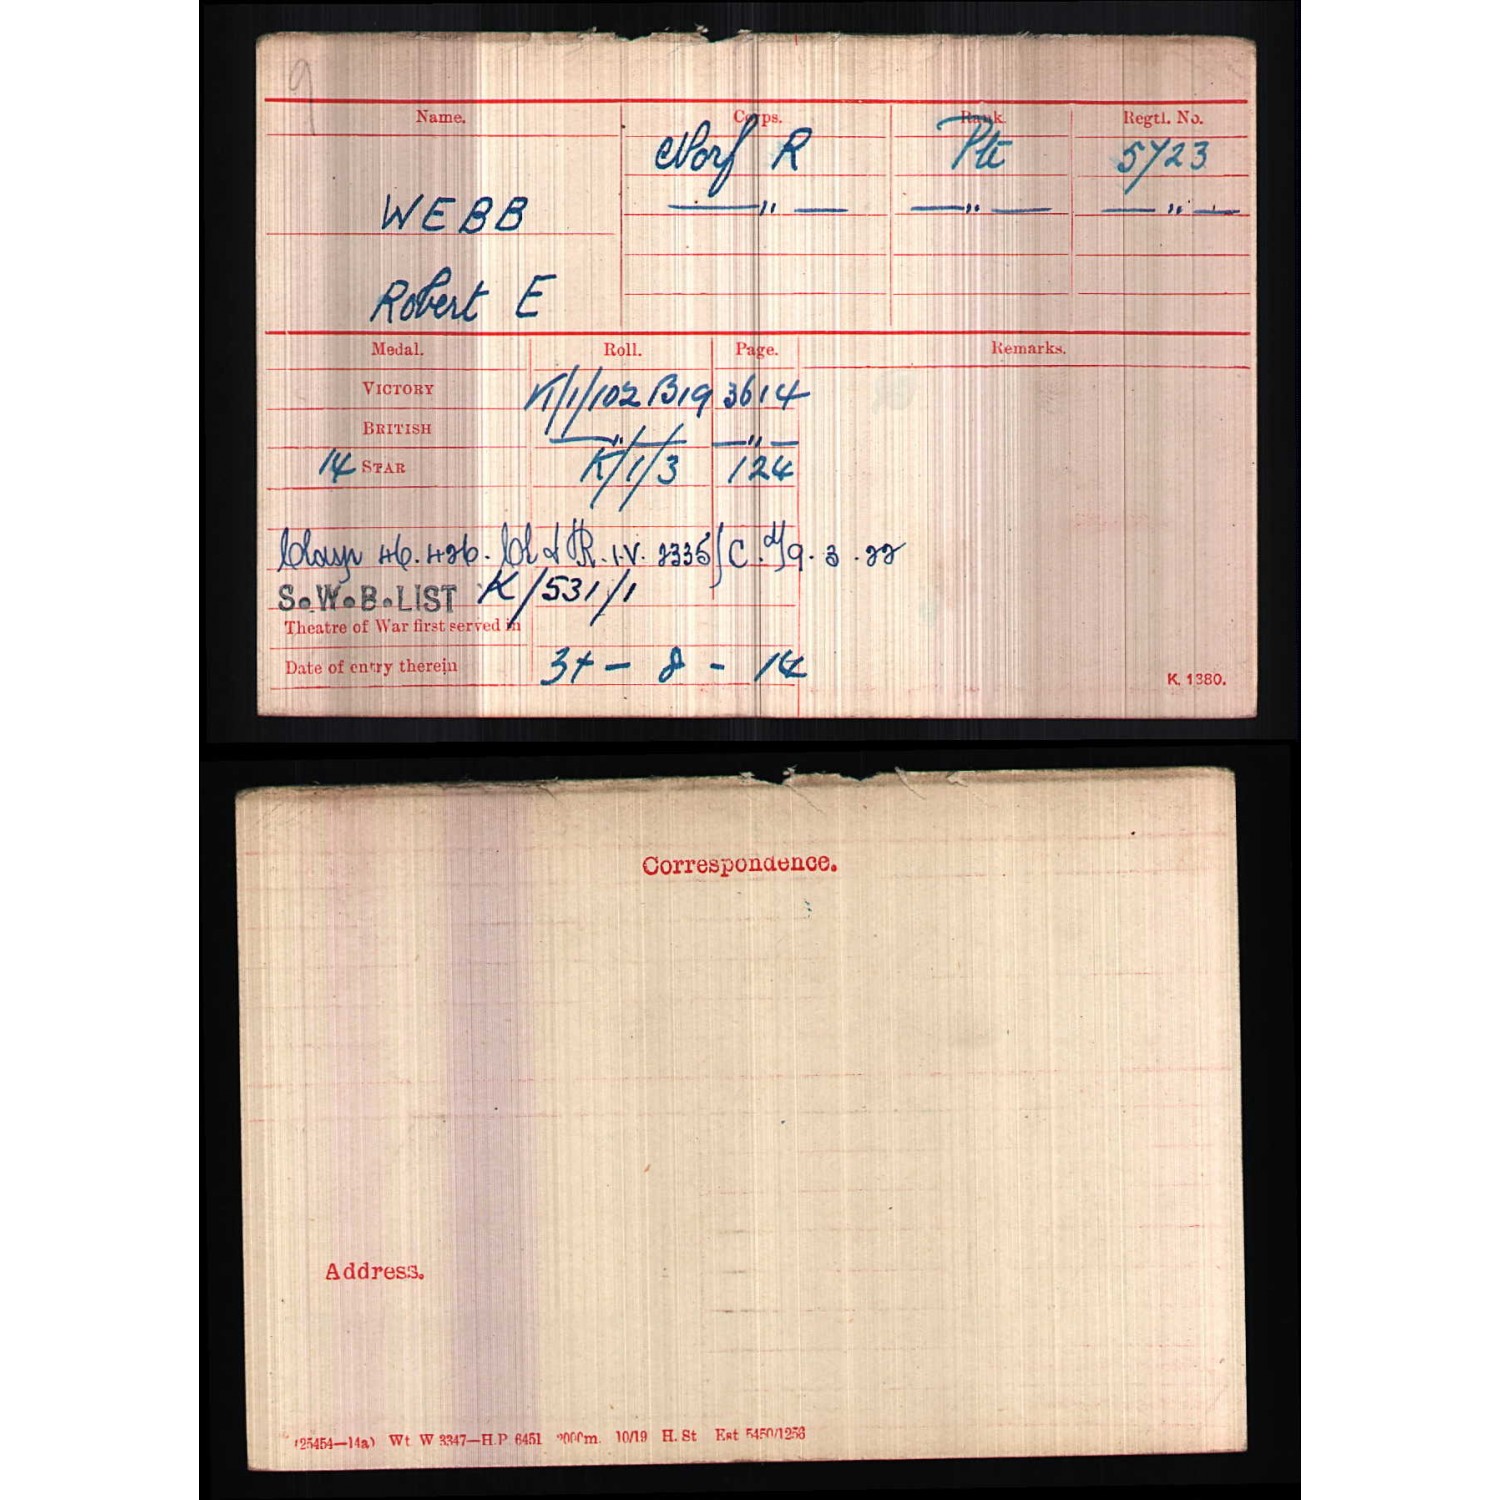 9
Name. Corps. Rank. Regtl. No.
Norf R Pte 5723
WEBB —„— —„— —„—
Robert E
Medal. Roll. Page. Remarks.
VICTORY K/1/102 B19 3614
BRITISH —„— —„—
14 STAR K/1/3 124
Clasp 46.426. Cl & R. I.V. 2335/C. d/9.3.22
S.W.B. LIST K/531/1
Theatre of War first served in
Date of entry therein 31 - 8 - 14
K. 1380.
Correspondence.
Address.
(25454—14a) Wt W 3347—H.P. 6451 2000m. 10/19 H. St Est 5450/1256